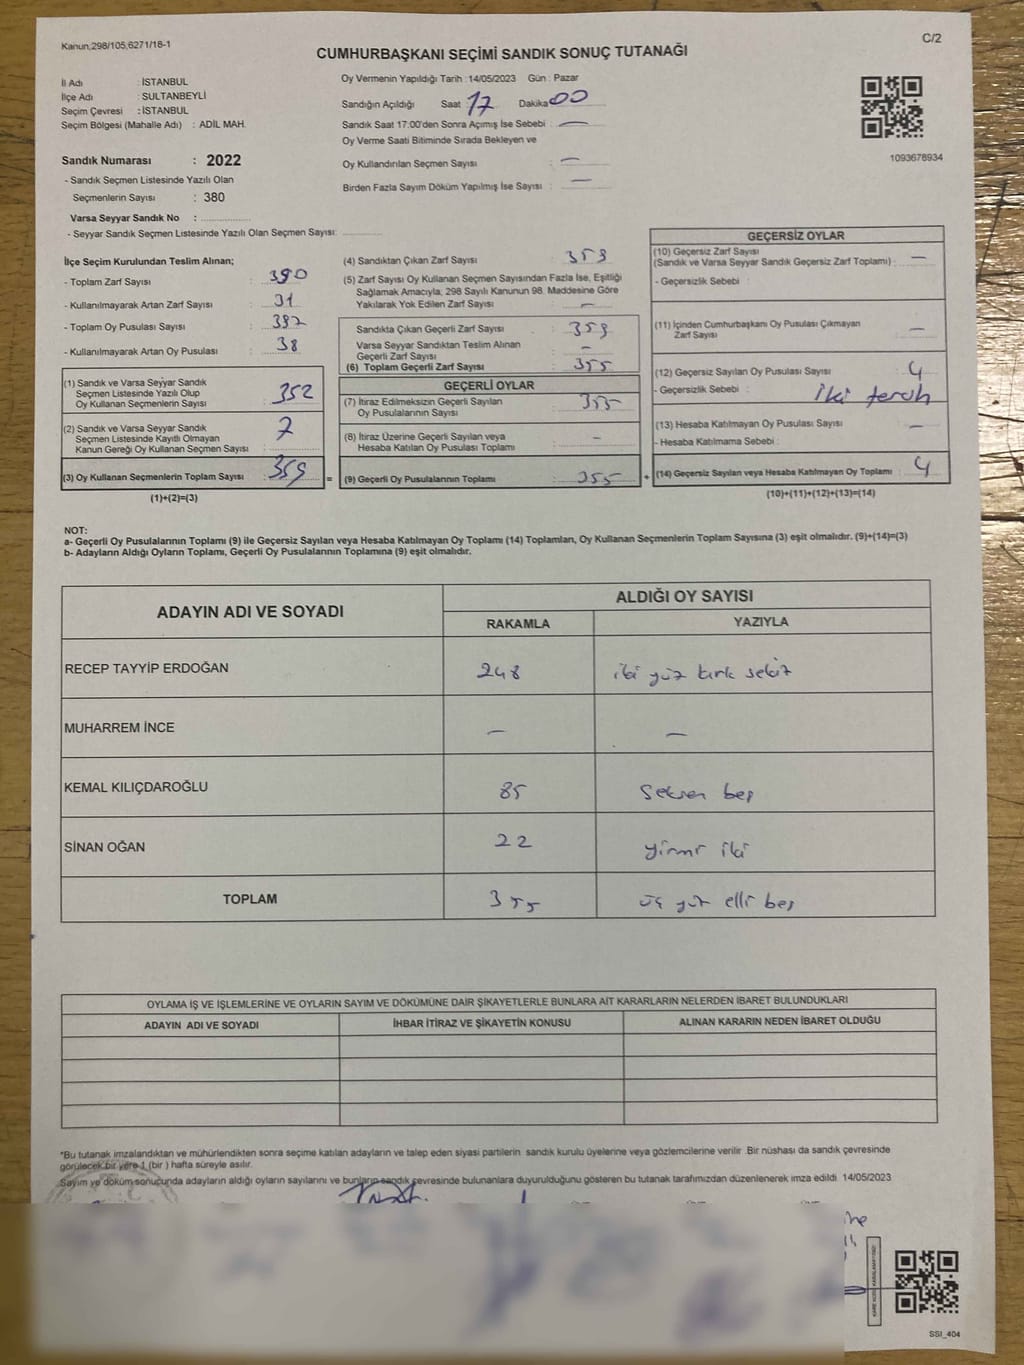 Kanun,298/105,6271/18-1
C/2
CUMHURBAŞKANI SEÇİMİ SANDIK SONUÇ TUTANAĞI
İl Adı : İSTANBUL
İlçe Adı : SULTANBEYLİ
Seçim Çevresi : İSTANBUL
Seçim Bölgesi (Mahalle Adı) : ADİL MAH.
Sandık Numarası : 2022
- Sandık Seçmen Listesinde Yazılı Olan
Seçmenlerin Sayısı : 380
Varsa Seyyar Sandık No :
- Seyyar Sandık Seçmen Listesinde Yazılı Olan Seçmen Sayısı:
Oy Vermenin Yapıldığı Tarih :14/05/2023 Gün : Pazar
Sandığın Açıldığı Saat : 17 Dakika 00
Sandık Saat 17:00'den Sonra Açımış İse Sebebi : —
Oy Verme Saati Bitiminde Sırada Bekleyen ve
Oy Kullandırılan Seçmen Sayısı : —
Birden Fazla Sayım Döküm Yapılmış İse Sayısı : —
1093678934
İlçe Seçim Kurulundan Teslim Alınan;
- Toplam Zarf Sayısı : 390
- Kullanılmayarak Artan Zarf Sayısı : 31
- Toplam Oy Pusulası Sayısı : 397
- Kullanılmayarak Artan Oy Pusulası : 38
(1) Sandık ve Varsa Seyyar Sandık
Seçmen Listesinde Yazılı Olup
Oy Kullanan Seçmenlerin Sayısı : 352
(2) Sandık ve Varsa Seyyar Sandık
Seçmen Listesinde Kayıtlı Olmayan
Kanun Gereği Oy Kullanan Seçmen Sayısı : 7
(3) Oy Kullanan Seçmenlerin Toplam Sayısı : 359
(1)+(2)=(3)
(4) Sandıktan Çıkan Zarf Sayısı : 359
(5) Zarf Sayısı Oy Kullanan Seçmen Sayısından Fazla İse, Eşitliği
Sağlamak Amacıyla; 298 Sayılı Kanunun 98. Maddesine Göre
Yakılarak Yok Edilen Zarf Sayısı : —
Sandıkta Çıkan Geçerli Zarf Sayısı : 359
Varsa Seyyar Sandıktan Teslim Alınan
Geçerli Zarf Sayısı : —
(6) Toplam Geçerli Zarf Sayısı : 355
GEÇERLİ OYLAR
(7) İtiraz Edilmeksizin Geçerli Sayılan
Oy Pusulalarının Sayısı : 355
(8) İtiraz Üzerine Geçerli Sayılan veya
Hesaba Katılan Oy Pusulası Toplamı : —
= (9) Geçerli Oy Pusulalarının Toplamı : 355 +
GEÇERSİZ OYLAR
(10) Geçersiz Zarf Sayısı
(Sandık ve Varsa Seyyar Sandık Geçersiz Zarf Toplamı) : —
- Geçersizlik Sebebi :
(11) İçinden Cumhurbaşkanı Oy Pusulası Çıkmayan
Zarf Sayısı : —
(12) Geçersiz Sayılan Oy Pusulası Sayısı : 4
- Geçersizlik Sebebi : İki tercih
(13) Hesaba Katılmayan Oy Pusulası Sayısı : —
- Hesaba Katılmama Sebebi :
(14) Geçersiz Sayılan veya Hesaba Katılmayan Oy Toplamı : 4
(10)+(11)+(12)+(13)=(14)
NOT:
a- Geçerli Oy Pusulalarının Toplamı (9) ile Geçersiz Sayılan veya Hesaba Katılmayan Oy Toplamı (14) Toplamları, Oy Kullanan Seçmenlerin Toplam Sayısına (3) eşit olmalıdır. (9)+(14)=(3)
b- Adayların Aldığı Oyların Toplamı, Geçerli Oy Pusulalarının Toplamına (9) eşit olmalıdır.
ADAYIN ADI VE SOYADI ALDIĞI OY SAYISI
RAKAMLA YAZIYLA
RECEP TAYYİP ERDOĞAN 248 iki yüz kırk sekiz
MUHARREM İNCE — —
KEMAL KILIÇDAROĞLU 85 Seksen beş
SİNAN OĞAN 22 yirmi iki
TOPLAM 355 üç yüz elli beş
OYLAMA İŞ VE İŞLEMLERİNE VE OYLARIN SAYIM VE DÖKÜMÜNE DAİR ŞİKAYETLERLE BUNLARA AİT KARARLARIN NELERDEN İBARET BULUNDUKLARI
ADAYIN ADI VE SOYADI İHBAR İTİRAZ VE ŞİKAYETİN KONUSU ALINAN KARARIN NEDEN İBARET OLDUĞU
*Bu tutanak imzalandıktan ve mühürlendikten sonra seçime katılan adayların ve talep eden siyasi partilerin sandık kurulu üyelerine veya gözlemcilerine verilir. Bir nüshası da sandık çevresinde
görülecek bir yere 1 (bir ) hafta süreyle asılır.
Sayım ve döküm sonucunda adayların aldığı oyların sayılarını ve bunların sandık çevresinde bulunanlara duyurulduğunu gösteren bu tutanak tarafımızdan düzenlenerek imza edildi 14/05/2023
SSI_404